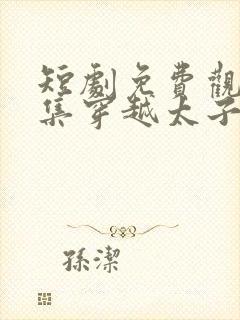 短劇免費觀
集穿越太子
孫潔